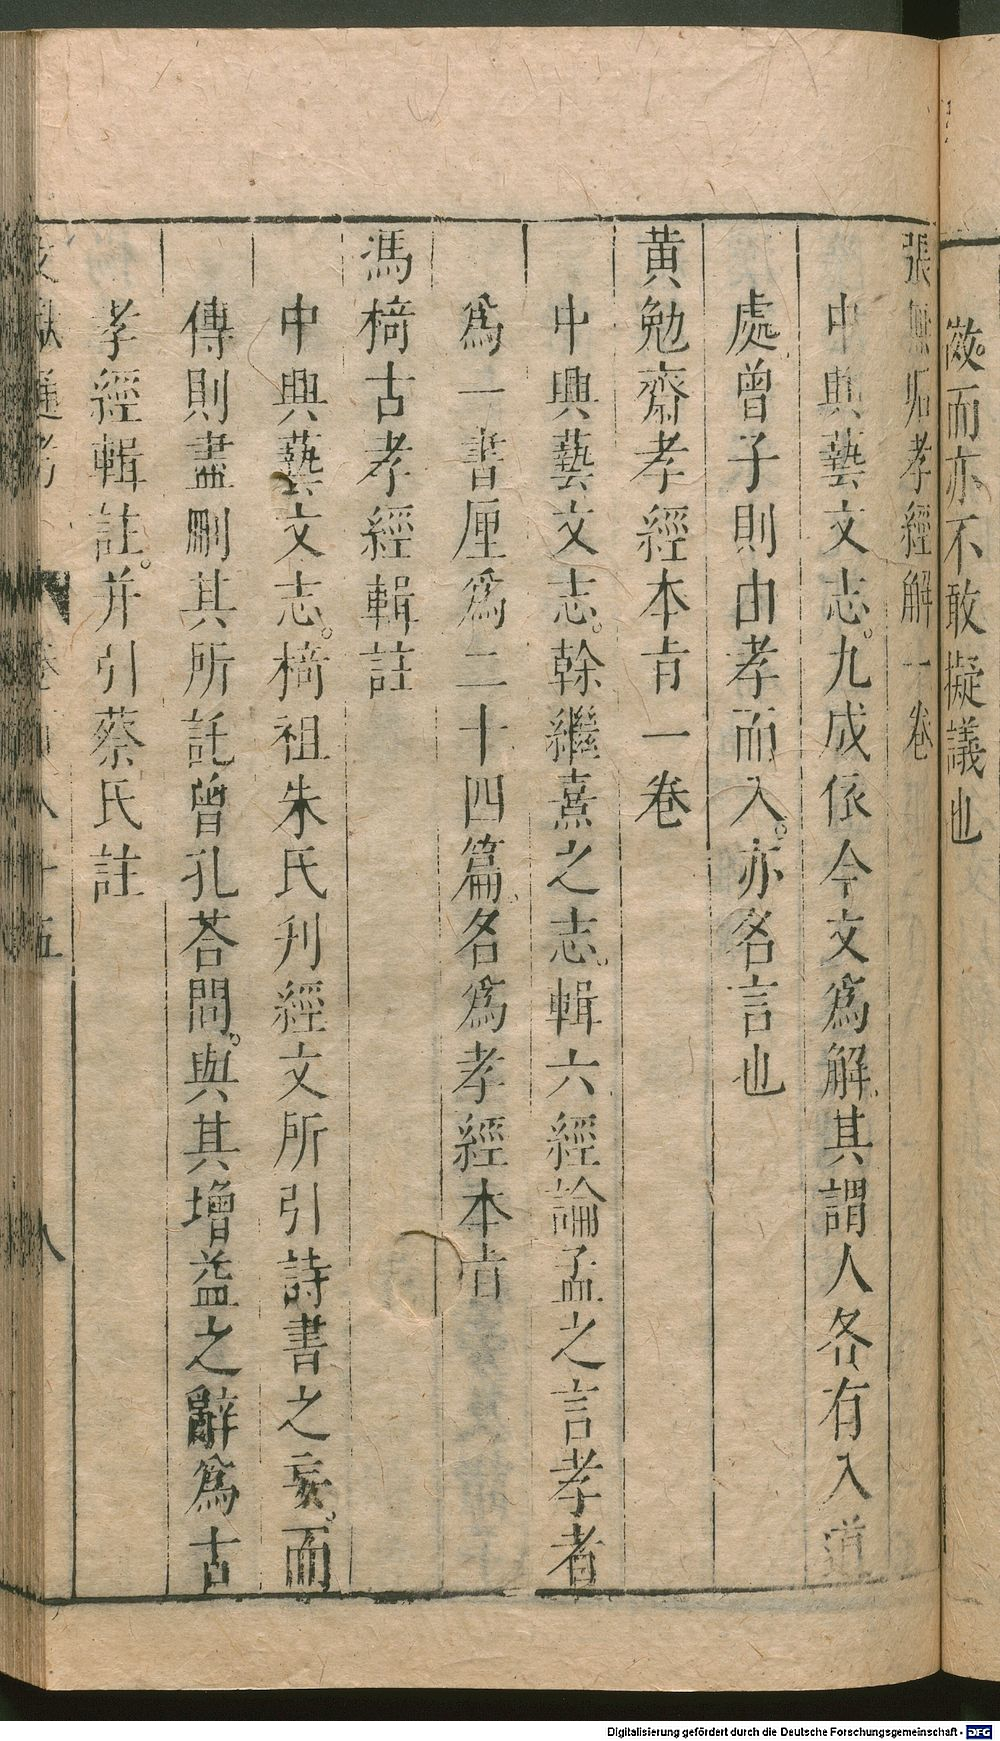 微而亦不敢擬議也
張無垢孝經解一卷
中興藝文志九成依今文爲解其謂人各有入道
處曾子則由孝而入亦名言也
黃勉齋孝經本旨一卷
中興藝文志榦繼熹之志輯六經論孟之言孝者
爲一書厘爲二十四篇名爲孝經本旨
馮椅古孝經輯註
中興藝文志椅祖朱氏刋經文所引詩書之妄而
傳則盡刪其所託曾孔荅問與其增益之辭爲古
孝經輯註并引蔡氏註
文獻通考 卷百八十五 八
Digitalisierung gefördert durch die Deutsche Forschungsgemeinschaft - DFG